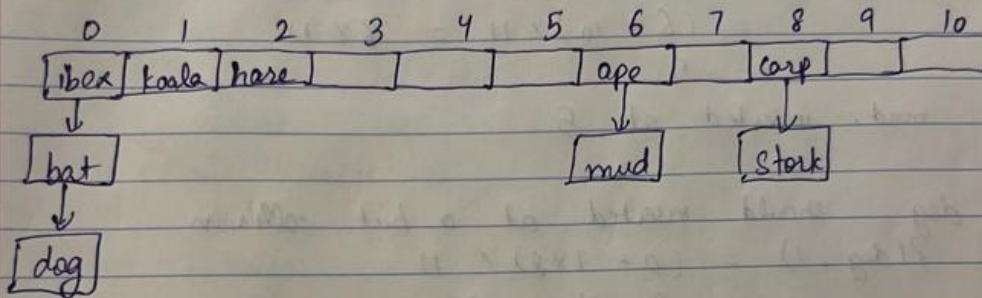 0 1 2 3 4 5 6 7 8 9 10
ibex koala hare ape carp
bat mud Stork
dog